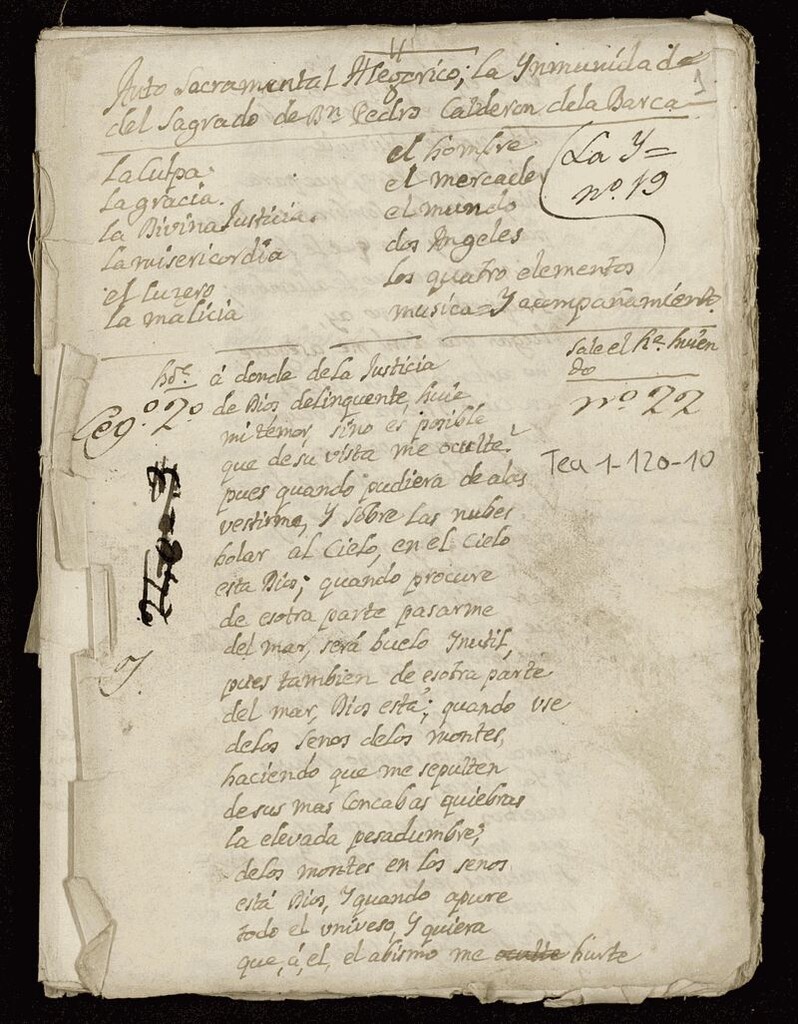 Auto Sacramental Alegorico; la Ynmunidad
del Sagrado de Dn Pedro Calderon dela Barca
1
la Culpa.
la gracia.
la Divina Justicia.
la misericordia
el luzero
la malicia
el hombre
el mercader
el mundo
dos Angeles
los quatro elementos
musica = Y acompañamiento.
La Y=
nº. 19
sale el he. huien
do
nº 22
Tea 1-120-10
Leg.º 2.º
hôe. á donde de la Justicia
de Dios delinquente, huie
mi temor, sino es posible
que de su vista me oculte?
pues quando pudiera de alas
vestirme, Y sobre las nubes
bolar al Cielo, en el Cielo
esta Dios; quando procure
de esotra parte pasarme
del mar, será buelo Ynutil,
pues tambien de esotra parte
del mar, Dios está; quando use
delos senos delos montes,
haciendo que me sepulten
de sus mas Concabas quiebras
la elevada pesadumbre;
delos montes en los senos
está Dios, Y quando apure
todo el univeso, Y quiera
que, á, el, el abismo me oculte hurte